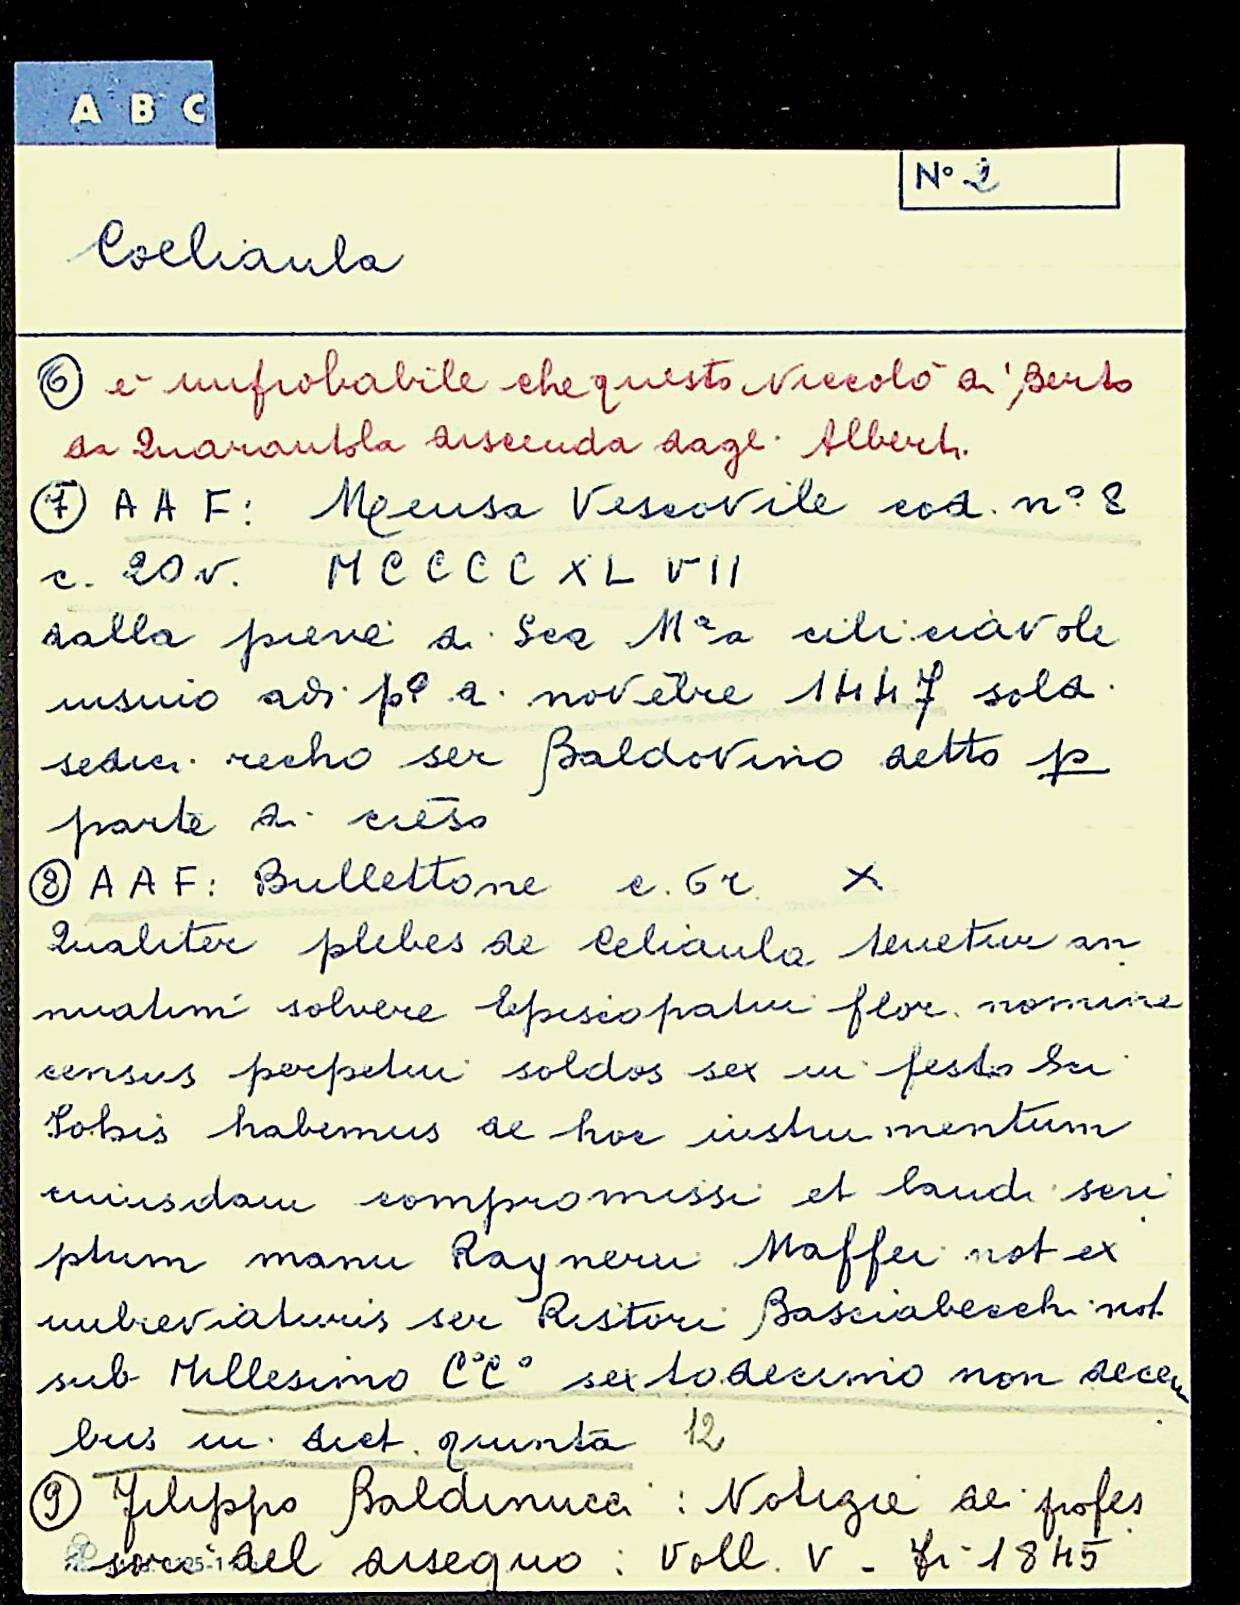 A B C
Nº 2
Coeliaula
⑥ è improbabile che questo Niccolò di Berto
da Quarantola discenda dagl. Alberti.
⑦ A A F: Mensa Vescovile cod. nº 8
c. 20 v. M C C C C X L V I I
dalla pieve di Sca Mᵃa ciliciavole
insino adi pº di novēbre 1447 sold.
sedici recho ser Baldovino detto p
parte di cēso
⑧ A A F: Bullettone c. 6 r. X
Qualiter plebes de Celiaula tenetur an
nuatim solvere Episcopatui flor. nomine
census perpetui soldos sex in festo Sci
habemus de hoc instrumentum
cuiusdam compromissi et laudi scri
ptum manu Raynerii Maffei not ex
imbreviaturis ser Ristori Basciabecchi not
sub Millesimo CºCº sextodecimo non decem
bris in dict. quinta 12
⑨ Filippo Baldinucci: Notizie dei profes
sori del disegno: Voll. V - Fi 1845